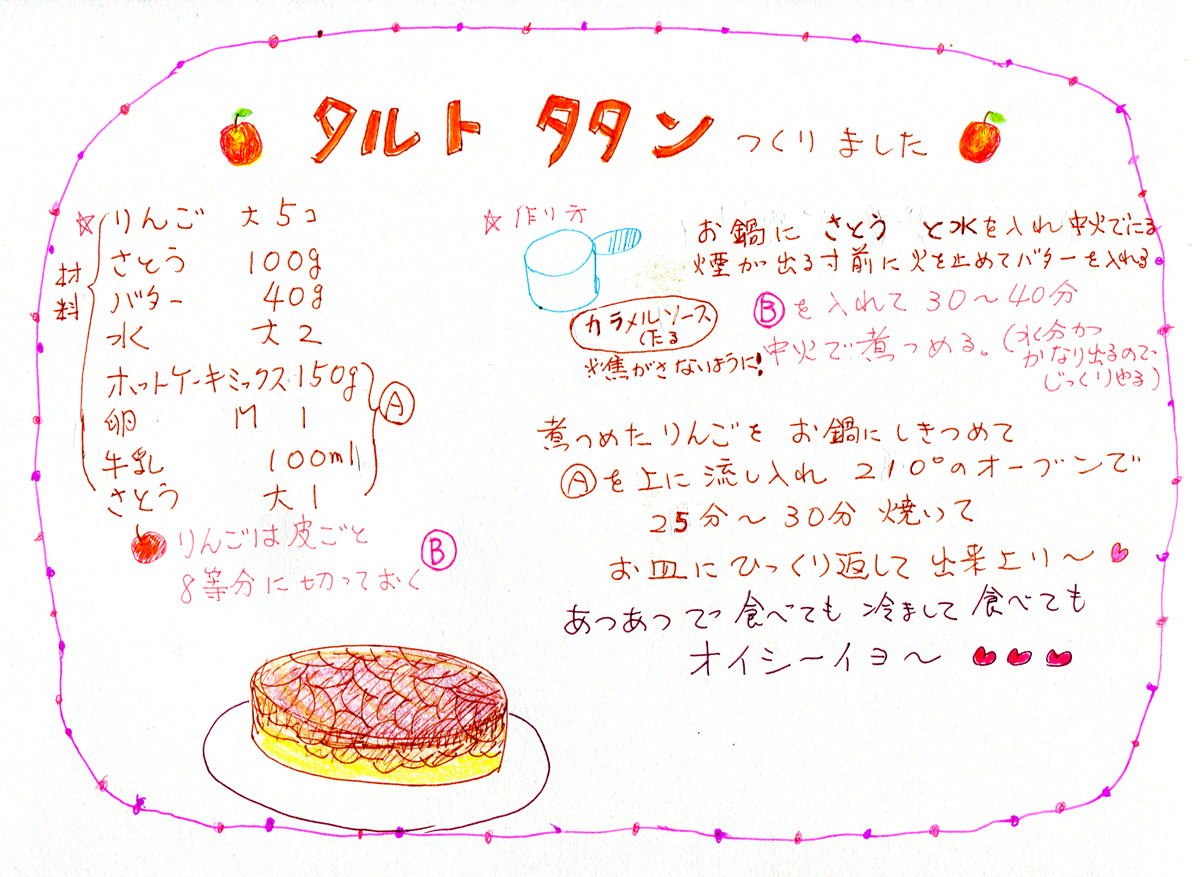 タルト タタン つくりました
☆ りんご 大 5コ
さとう 100g
バター 40g
水 大 2
材料
ホットケーキミックス 150g
卵 M 1
牛乳 100ml
さとう 大 1
Ⓐ
りんごは皮ごと
8等分に切っておく
Ⓑ
☆ 作り方
お鍋に さとう と水を入れ 中火でにる
煙が出る寸前に火を止めてバターを入れる
カラメルソース
※焦がさないように!
Ⓑを入れて 30〜40分
中火で煮つめる。(水分が
かなり出るので、
じっくりやる)
煮つめたりんごを お鍋にしきつめて
Ⓐを上に流し入れ 210°のオーブンで
25分〜30分 焼いて
お皿にひっくり返して 出来上り〜
あつあつでっ食べても 冷まして食べても
オイシーイヨ〜